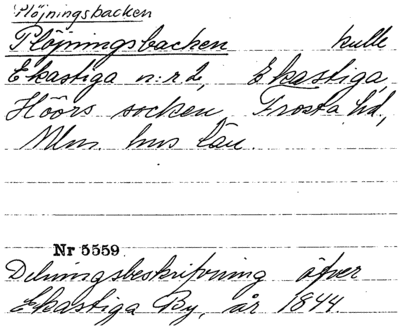 Plöjningsbacken
Plöjningsbacken kulle
Ekastiga n:r 2, Ekastiga,
Höörs socken Frosta hd,
Mlm. hus län.
Nr 5559
Delningsbeskrifvning öfver
Ekastiga By, år 1844.